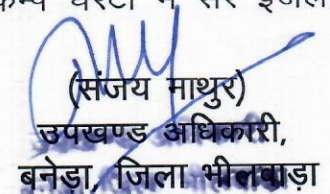 में सरे इजल
(संजय माथुर)
उपखण्ड अधिकारी,
बनेड़ा, जिला भीलवाड़ा